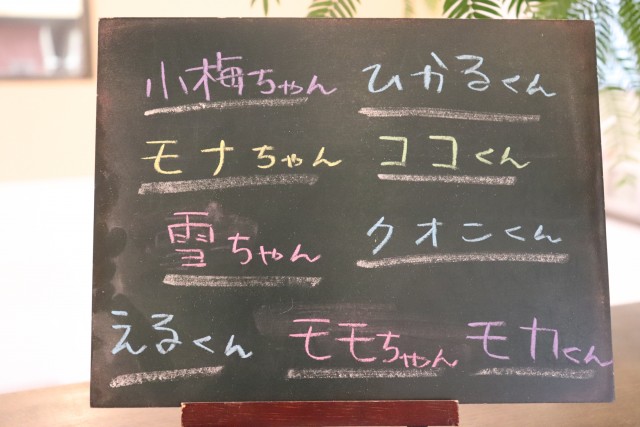 小梅ちゃん ひかるくん
モナちゃん ココくん
雪ちゃん クオンくん
えるくん モモちゃん モカくん